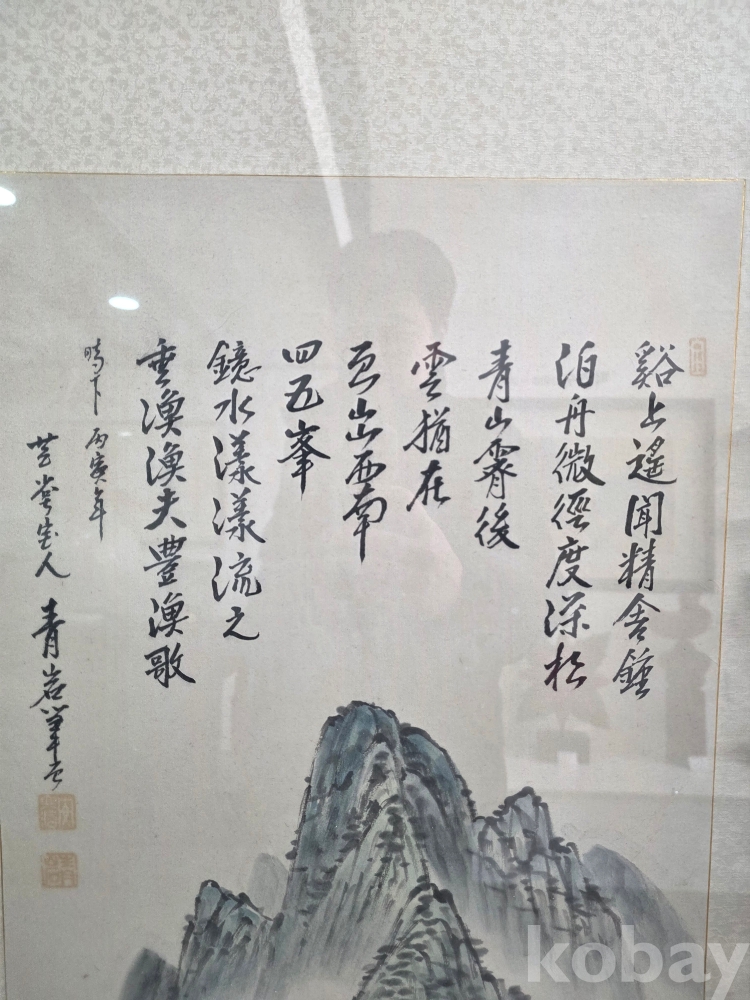 谿上遙聞精舍鍾
泊舟微徑度深松
青山霽後
雲猶在
画出西南
四五峯
鏡水漾漾流之
垂漁漁夫豊漁歌
時下 丙寅年
芸堂宝人
青岩筆
kobay